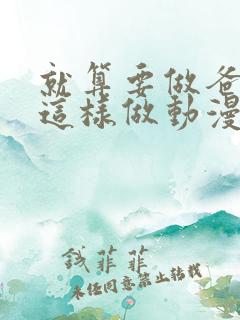 就算要做爸
這樣做動漫
錢菲菲
未經同意禁止轉載